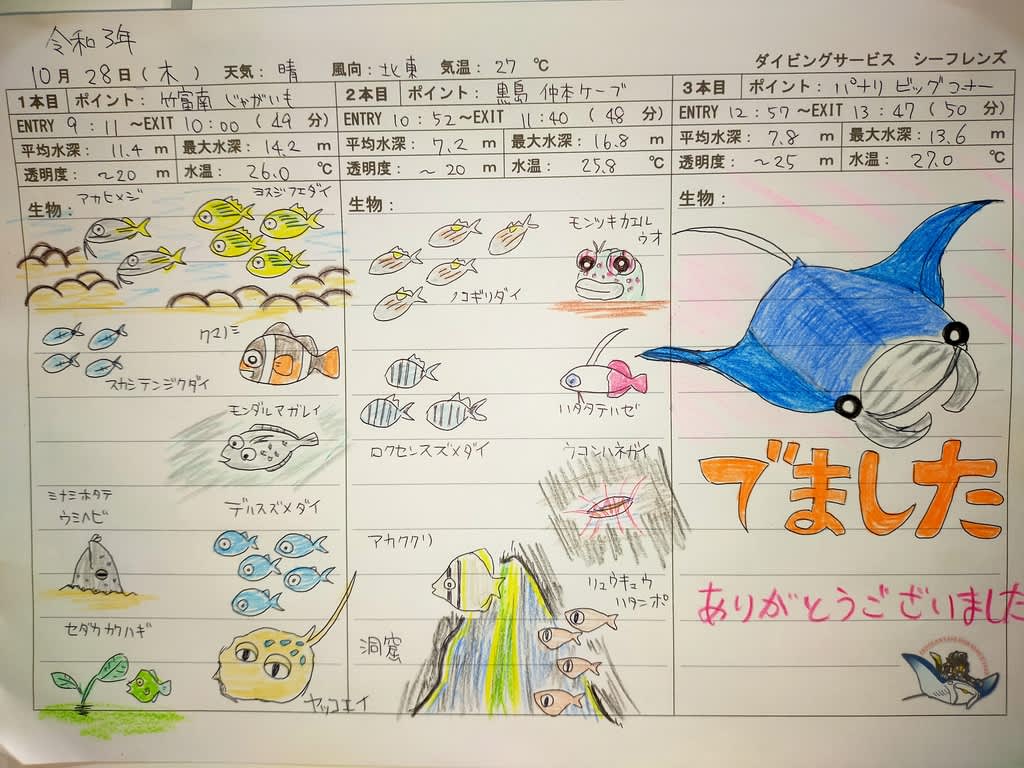 令和3年
10月 28日(木) 天気: 晴 風向: 北東 気温: 27 ℃ ダイビングサービス シーフレンズ
1本目 ポイント: 竹富南 じゃがいも
ENTRY 9:11 ~EXIT 10:00 (49 分)
平均水深: 11.4 m 最大水深: 14.2 m
透明度: ~20 m 水温: 26.0 ℃
生物:
アカヒメジ
ヨスジフエダイ
クマノミ
スカシテンジクダイ
モンダルマガレイ
ミナミホタテ
ウミヘビ
デルスズメダイ
セダカカワハギ
ヤッコエイ
2本目 ポイント: 黒島 仲本ケーブ
ENTRY 10:52 ~EXIT 11:40 (48 分)
平均水深: 7.2 m 最大水深: 16.8 m
透明度: ~20 m 水温: 25.8 ℃
生物:
モンツキカエル
ウオ
ノコギリダイ
ハタタテハゼ
ロクセンスズメダイ
ウコンハネガイ
アカククリ
リュウキュウ
ハタンポ
洞窟
3本目 ポイント: パナリ ビッグコーナー
ENTRY 12:57 ~EXIT 13:47 (50 分)
平均水深: 7.8 m 最大水深: 13.6 m
透明度: ~25 m 水温: 27.0 ℃
生物:
でました
ありがとうございました